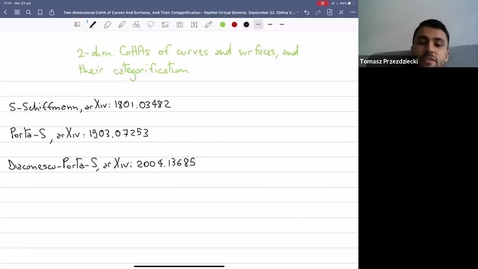 17:01 Mar 22 set
Two-dimensional CoHA of Curves And Surfaces, And Their Categorification - RepNet Virtual Seminar. September 22. Online V...
2-dim. CoHAs of curves and surfaces, and
their categorification
S-Schiffmann, arXiv: 1801.03482
Porta-S, arXiv: 1903.07253
Diaconescu-Porta-S, arXiv: 2004.13685
Tomasz Przezdziecki